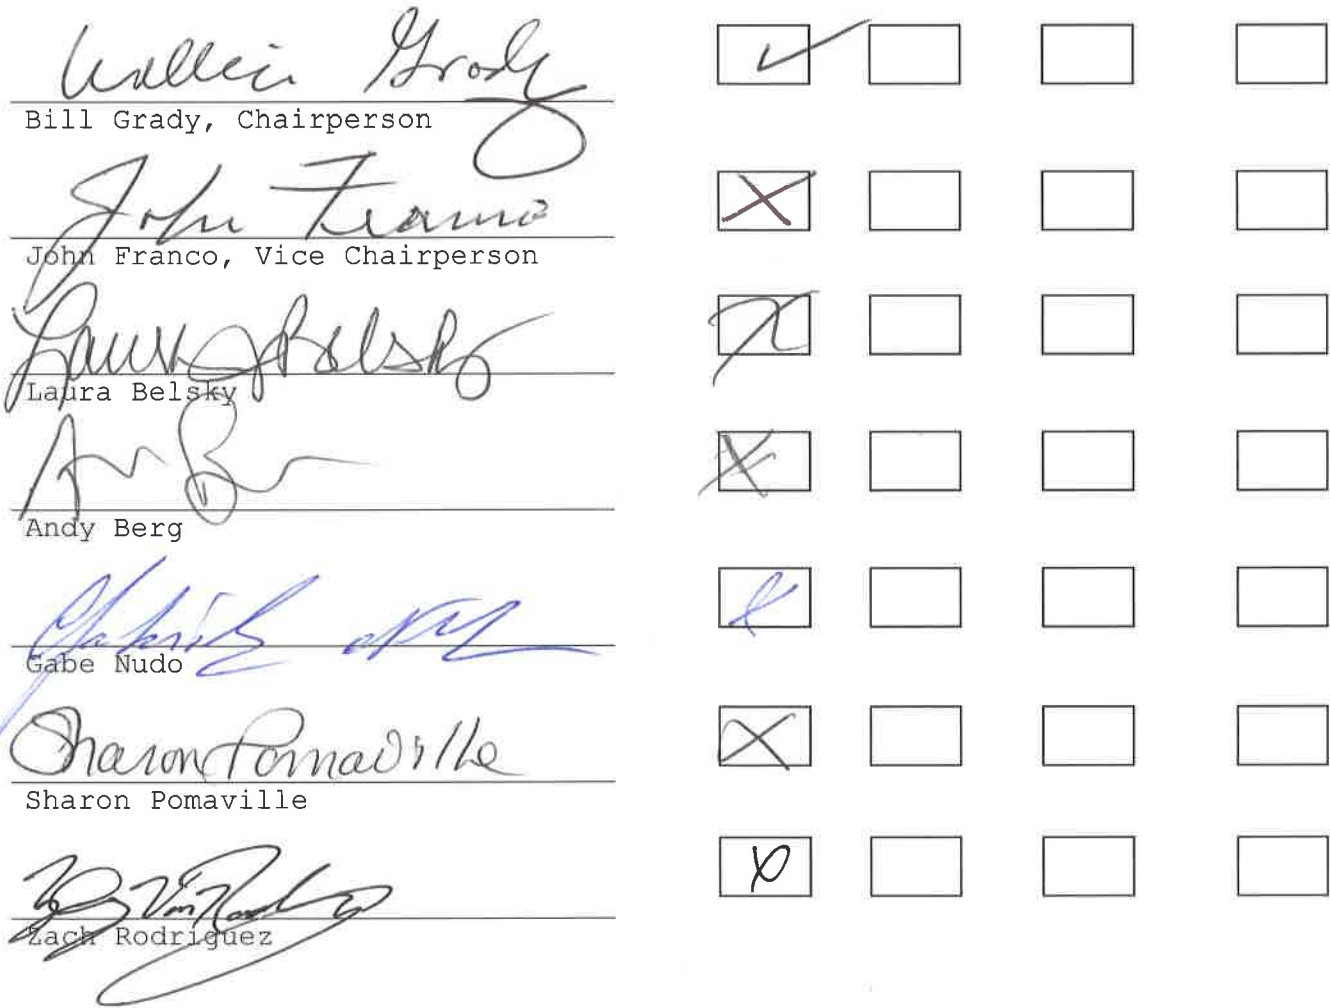 William Grady
Bill Grady, Chairperson
John Franco
John Franco, Vice Chairperson
Laura Belsky
Laura Belsky
Andy Berg
Gabe Nudo
Sharon Pomaville
Sharon Pomaville
Zach Rodriguez